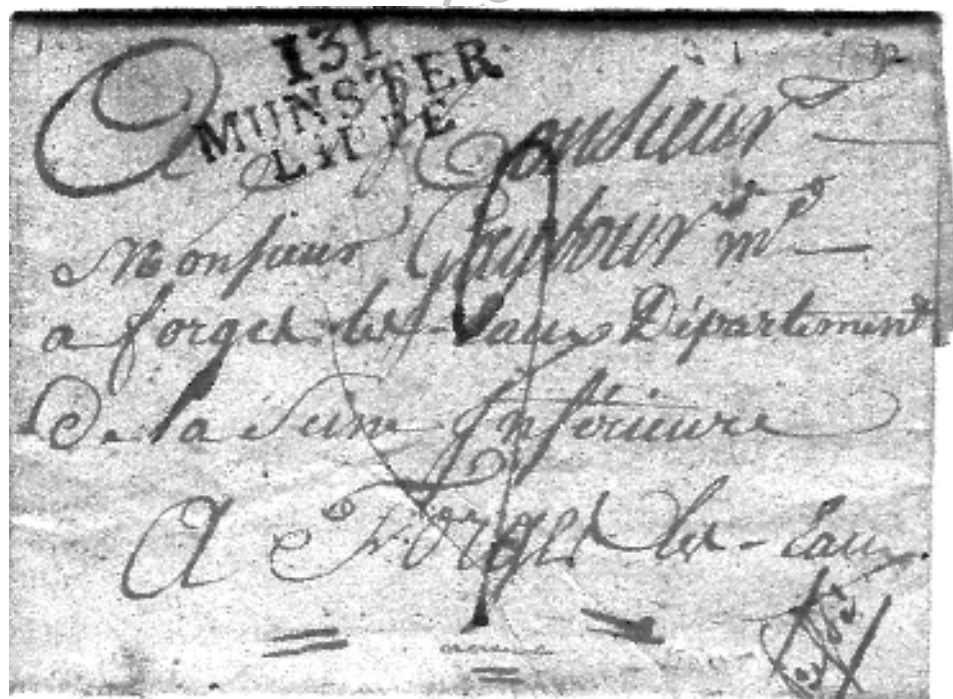 131
MUNSTER
LIPPE
A Monsieur
Monsieur
a forges les Eaux Département
De la Seine Inférieure
A Forges les-Eaux